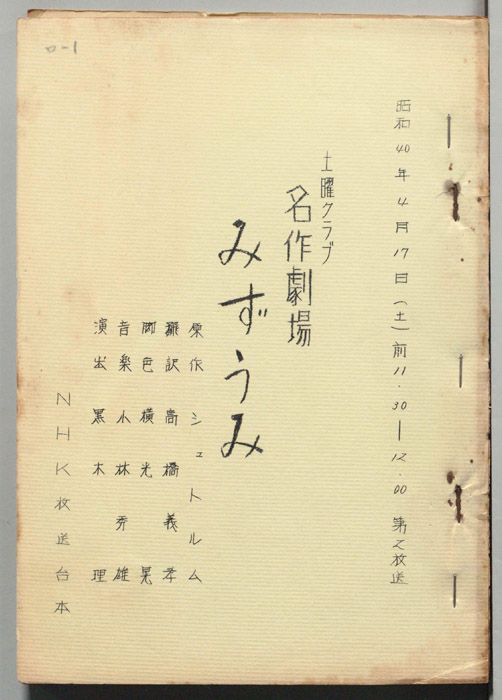 ロ-1
昭和40年4月17日(土)前11.30―12.00 第2放送
土曜クラブ
名作劇場
みずうみ
原作 シュトルム
翻訳 高橋義孝
脚色 横光晃
音楽 小林秀雄
演出 黒木理
NHK放送台本